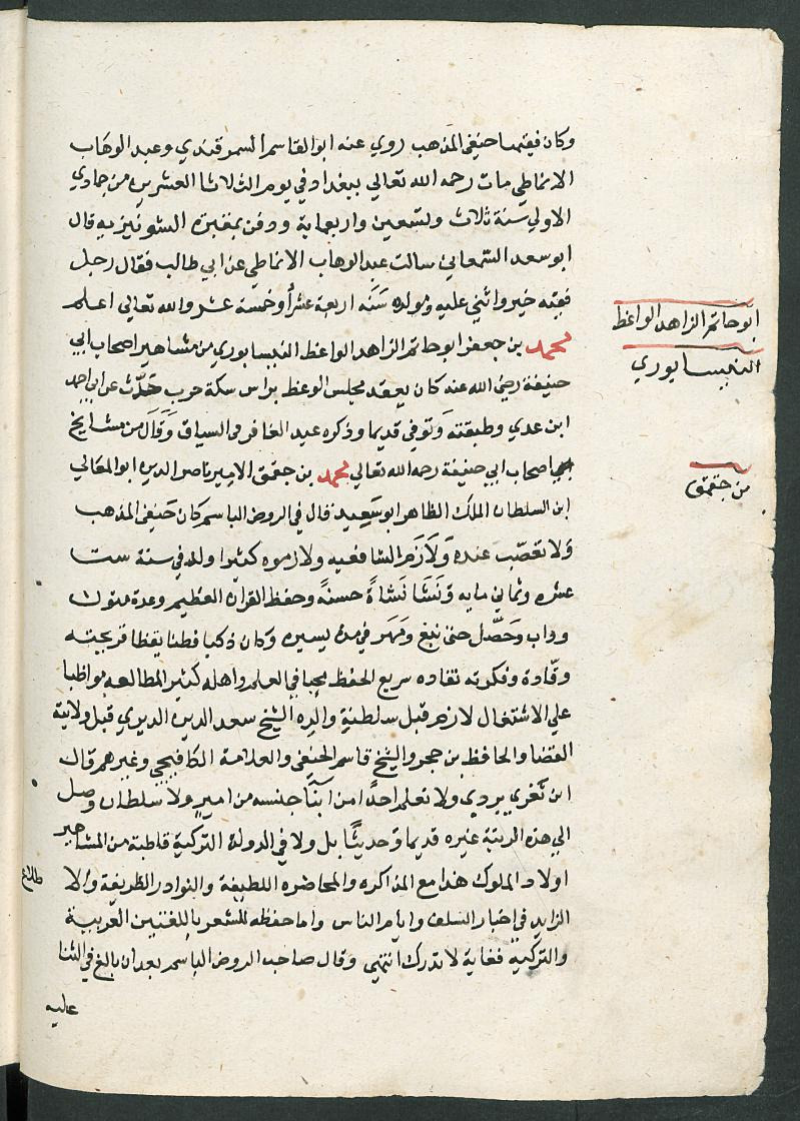 وكان فقيها حنفي المذهب روي عنه ابو القاسم السمرقندي وعبد الوهاب
الانماطي مات رحمه الله تعالي ببغداد في يوم الثلاثا العشرين من جمادي
الاولي سنة ثلاث وتسعين واربعماية ودفن بمقبرة الشونيزيه قال
ابو سعد السمعاني سالت عبد الوهاب الانماطي عن ابي طالب فقال رجل
فيه خير واثني عليه ومولده سنه اربعة عشر او خمسة عشر والله تعالي اعلم
محمد بن جعفر ابو حاتم الزاهد الواعظ النيسابوري من مشاهير اصحاب ابي
حنيفة رضي الله عنه كان يعقد مجلس الوعظ براس سكة حرب حدث عن ابي احمد
ابن عدي وطبقته وتوفي قديما وذكره عبد الغافر في السياق وقال من مشايخ
اصحاب ابي حنيفة رحمه الله تعالي محمد بن جقمق الامير ناصر الدين ابو المعالي
ابن السلطان الملك الظاهر ابو سعيد قال في الروض الباسم كان حنفي المذهب
ولا تعصب عنده ولازم الشافعيه ولازموه كثيرا ولد في سنة ست
عشره وثماني مايه ونشا نشاة حسنة وحفظ القران العظيم وعدة متون
وداب وحصل حتى نبغ ومهر في مدة يسيره وكان ذكيا فطنا يقظا قريحته
وقادة وفكرته نقاده سريع الحفظ محبا في العلم واهله كثير المطالعه مواظبا
علي الاشتغال لازم قبل سلطنة والده الشيخ سعد الدين الديري قبل ولايته
القضا والحافظ بن حجر والشيخ قاسم الحنفي والعلامة الكافيجي وغيرهم قال
ابن تغري بردي ولا تعلم احدا من ابنا جنسه من امير ولا سلطان وصل
الي هذه الرتبة غيره قديما وحديثا بل ولا في الدولة التركية قاطبة من المشاهير
اولاد الملوك هذا مع المذاكره والمحاضره اللطيفة والنوادر الظريفة والا
طلاع
الزايد في اخبار السلف وايام الناس واما حفظه للشعر باللغتين العربية
والتركية فغاية لا تدرك انتهي وقال صاحب الروض الباسم بعد ان بالغ في الثنا
عليه
ابو حاتم الزاهد الواعظ
النيسابوري
بن جقمق